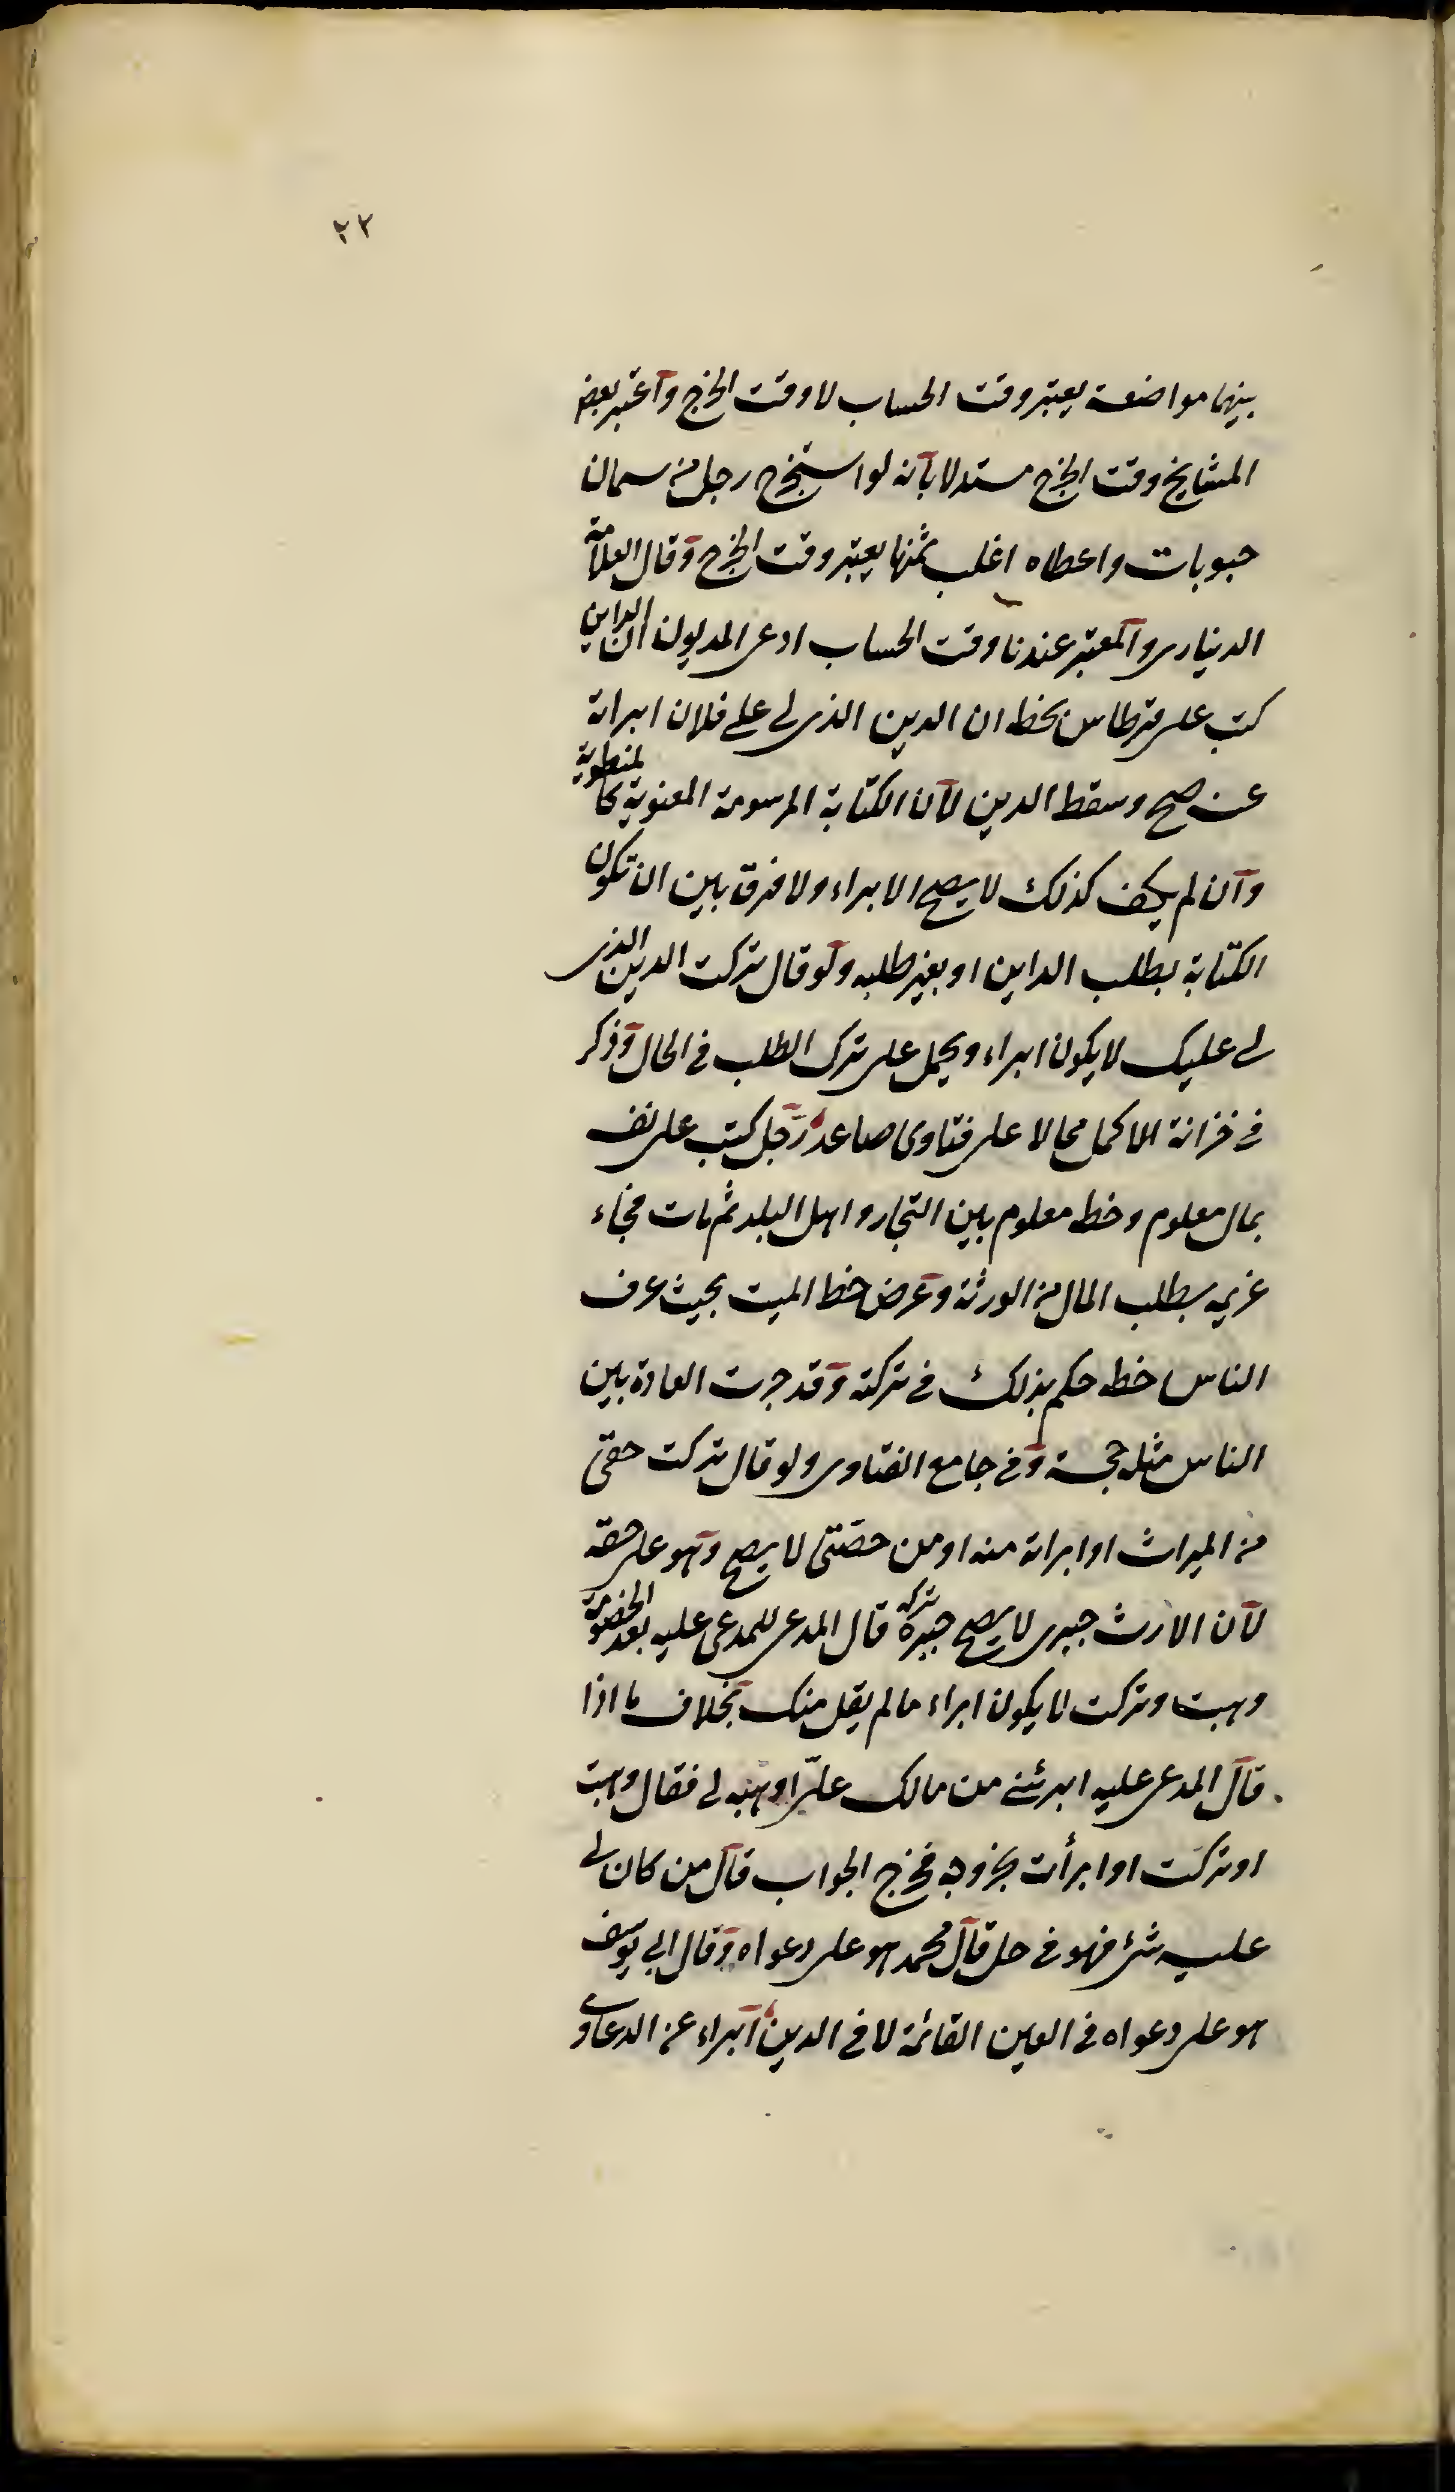 ٢٢
بينهما مواضعة يعتبر وقت الحساب لا وقت الخرج واعتبر بعض
المشايخ وقت الخرج مستدلا بانه لو استجرج رجل من سمان
حبوبات واعطاه اغلب ثمنها يعتبر وقت الخرج وقال العلامة
الدينارى والمعتبر عندنا وقت الحساب ادعى المديون ان الداين
كتب على قرطاس بخطه ان الدين الذى لى على فلان ابراته
عنه صح وسقط الدين لان الكتابة المرسومة المعنوية كالمنطوية
وان لم يكن كذلك لا يصح الابراء ولا فرق بين ان تكون
الكتابة بطلب الداين او بغير طلبه ولو قال تركت الدين الذى
لى عليك لا يكون ابراء ويحمل على ترك الطلب فى الحال وذكر
فى خزانة الاكمل محالا على فتاوى صاعد رجل كتب على نفسه
بمال معلوم وخطه معلوم بين التجار واهل البلد ثم مات فجاء
غريمه يطلب المال من الورثة وعرض خط الميت بحيث عرف
الناس خطه حكم بذلك فى تركته وقد جرت العادة بين
الناس مثله حجة وفى جامع الفتاوى ولو قال تركت حقى
من الميراث او ابراته منه او من حصتى لا يصح وهو على حقه
لان الارث جبرى لا يصح تركه قال المدعى للمدعى عليه بعد الخصومة
وهبت وتركت لا يكون ابراء ما لم يقل منك بخلاف ما اذا
قال المدعى عليه ابرئنى من مالك علىّ او هبه لى فقال وهبت
او تركت او ابرأت بخروجه مخرج الجواب قال من كان لى
عليه شئ فهو فى حل قال محمد هو على دعواه وقال ابى يوسف
هو على دعواه فى العين القائمة لا فى الدين ابراء عن الدعاوى